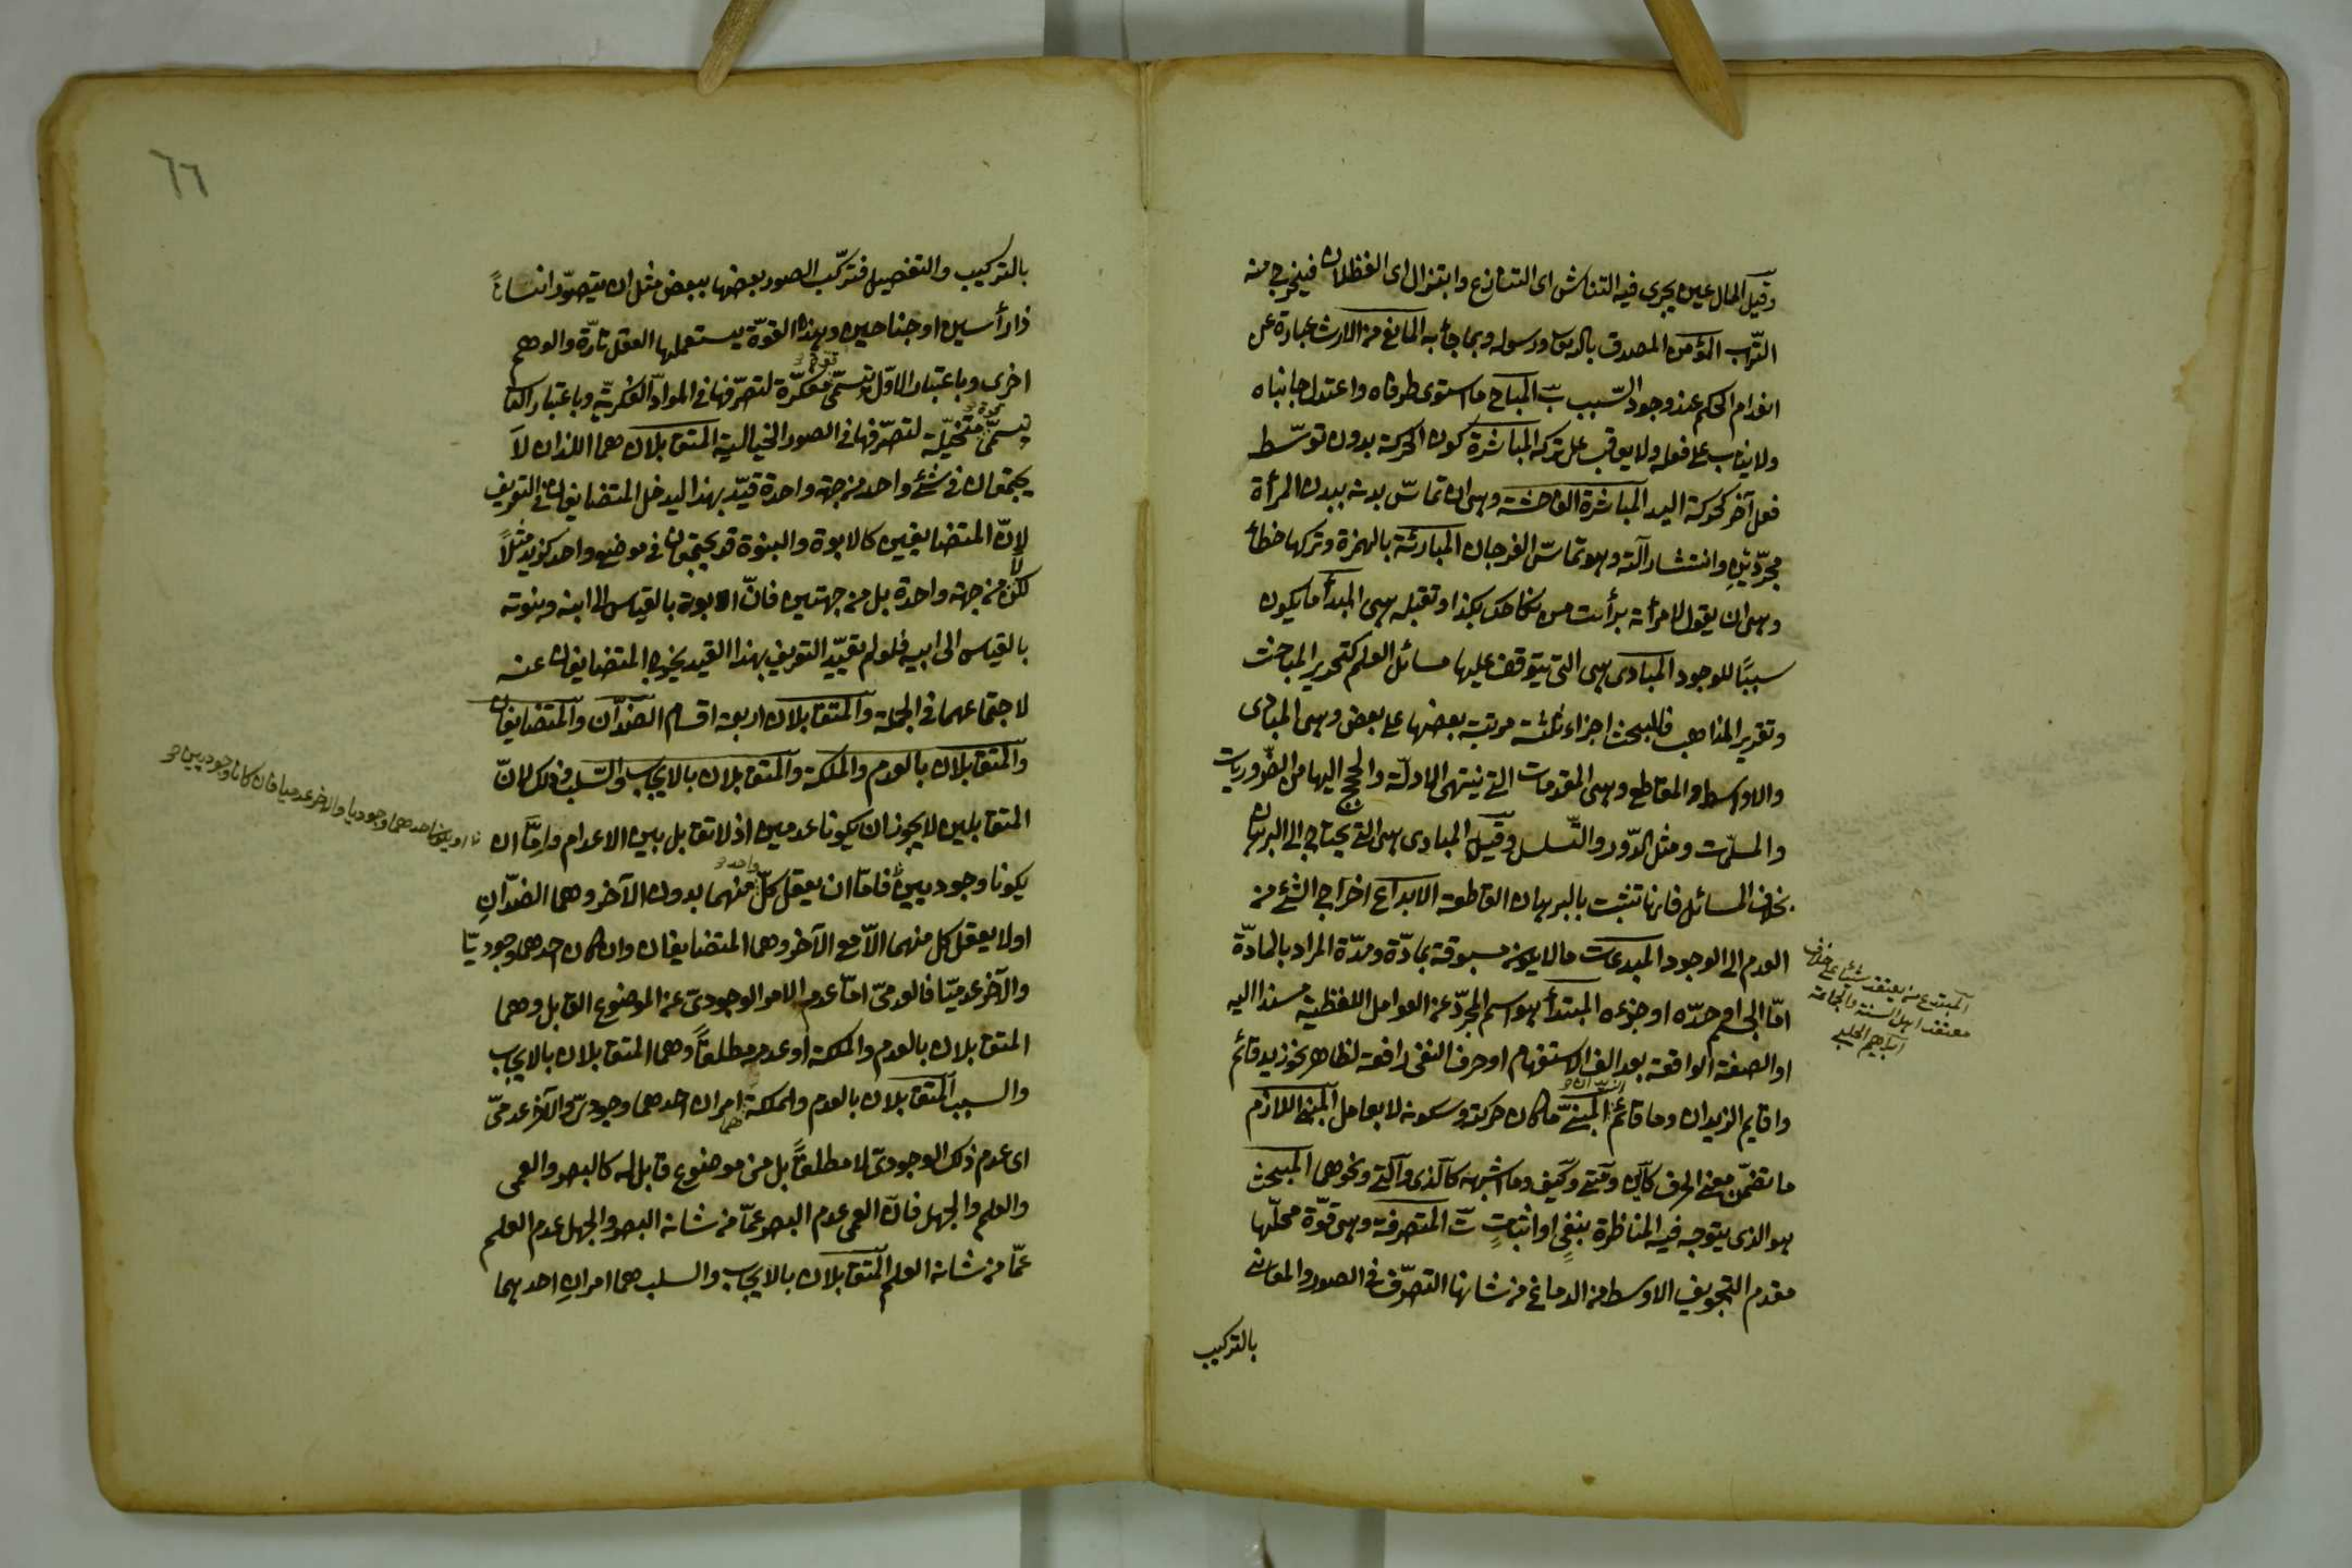 وقيل المال عين يجرى فيه التناقش اى التنازع وابتزال اى الفظلات فيخرج منه
التراب المؤمن المصدق بالله ورسوله وبما جاء به المانع من الارث عبارة عن
انعدام الحكم عند وجود السبب ت المباح ما استوى طرفاه واعتدل جانباه
ولا يثاب على فعله ولا يعاقب على تركه المباشرة كون الحركة بدون توسّط
فعل آخر كحركة اليد المباشرة الفاحشة وهى ان تماسّ بدنه ببدن المرأة
مجرّدين وانتشار آلته وهو تماسّ الفرجان المبارئة بالهمزة وتركها خطأ
وهى ان يقول لامرأته برأت من نكاحك بكذا وتقبله هى المبدأ ما يكون
سببًا للوجود المبادى هى التى يتوقف عليها مسائل العلم كتحرير المباحث
وتقرير المذاهب فللبحث اجزاء ثلثة مرتبة بعضها على بعض وهى المبادى
والاواسط والمقاطع وهى المقدمات التى ينتهى الادلّة والحجج اليها من الضّروريات
والمسلّمات ومثل الدّور والتّسلسل وقيل المبادى هى التى يحتاج الى البرهان
بخلاف المسائل فانها تثبت بالبرهان القاطعة الابداع اخراج الشئ من
العدم الى الوجود المبدعات ما لا يكون مسبوقة بمادّة ومدّة المراد بالمادّة
امّا الجسم او حدّه او جزءه المبتدأ هو اسم المجرّد عن العوامل اللفظية مسندا اليه
او الصفة الواقعة بعد الف الاستفهام او حرف النفى رافعة لظاهر نحو زيد قائم
واقايم الزيدان وما قائم الزيدان المبنىّ ما كان حركته وسكونه لا بعامل المبنى اللازم
ما تضمّن معنى الحرف كاين ومتى وكيف وما اشبهه كالذى والتى ونحوهما المبحث
هو الذى يتوجه فيه المناظرة بنفىٍ او اثباتٍ ت المتصرفة وهى قوّة محلّها
مقدم التجويف الاوسط من الدماغ من شانها التصرّف فى الصور والمعانى
بالتركيب
المبتدع من يعتقد شيئا على خلاف
معتقد اهل السنة والجماعة
ابراهيم الحلبى
٦٦
بالتركيب والتفصيل فتركّب الصور بعضها ببعض مثل ان يتصوّر انسانًا
ذا رأسين او جناحين وهذه القوّة يستعملها العقل تارّة والوهم
اخرى وباعتبار الاوّل تسمّى مفكّرة لتصرّفها فى الموادّ الفكريّة وباعتبار الثانى
تسمّى متخيّلة لتصرّفها فى الصور الخيالية المتقابلان هما اللذان لا
يجتمعان فى شئ واحد من جهة واحدة قيّد بهذا ليدخل المتضايفان فى التعريف
لانّ المتضايفين كالابوة والبنوة قد يجتمعان فى موضع واحد كزيد مثلاً
لكن لا من جهة واحدة بل من جهتين فانّ الابوة بالقياس الى ابنه وبنوته
بالقياس الى ابيه فلو لم يقيّد التعريف بهذا القيد يخرج المتضايفان عنه
لاجتماعهما فى الجملة والمتقابلان اربعة اقسام الضدّان والمتضايفان
والمتقابلان بالعدم والملكة والمتقابلان بالايجاب والسّلب وذلك لانّ
المتقابلين لا يجوز ان يكونا عدمين اذ لا تقابل بين الاعدام وامّا ان
يكونا وجوديين فامّا ان يعقل كلّ واحد منهما بدون الآخر وهما الضدّانِ
او لا يعقل كل منهما الاّ مع الآخر وهما المتضايفان وان كان احدهما وجوديّا
والآخر عدميّا فالعدمىّ امّا عدم الامر الوجودىّ عن الموضوع القابل وهما
المتقابلان بالعدم والملكة او عدمه مطلقاً وهما المتقابلان بالايجاب
والسلب المتقابلان بالعدم والملكة هما امران احدهما وجودىّ والآخر عدمىّ
اى عدم ذلك الوجودىّ لا مطلقاً بل من موضوع قابل له كالبصر والعمى
والعلم والجهل فانّ العمى عدم البصر عمّا من شانه البصر والجهل عدم العلم
عمّا من شانه العلم المتقابلان بالايجاب والسلب هما امرانِ احدهما
او يكون احدهما وجوديا والاخر عدميا فان كانا وجوديين